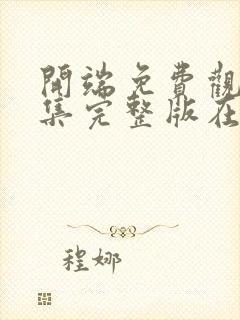 開端免費觀
集完整版在
程娜